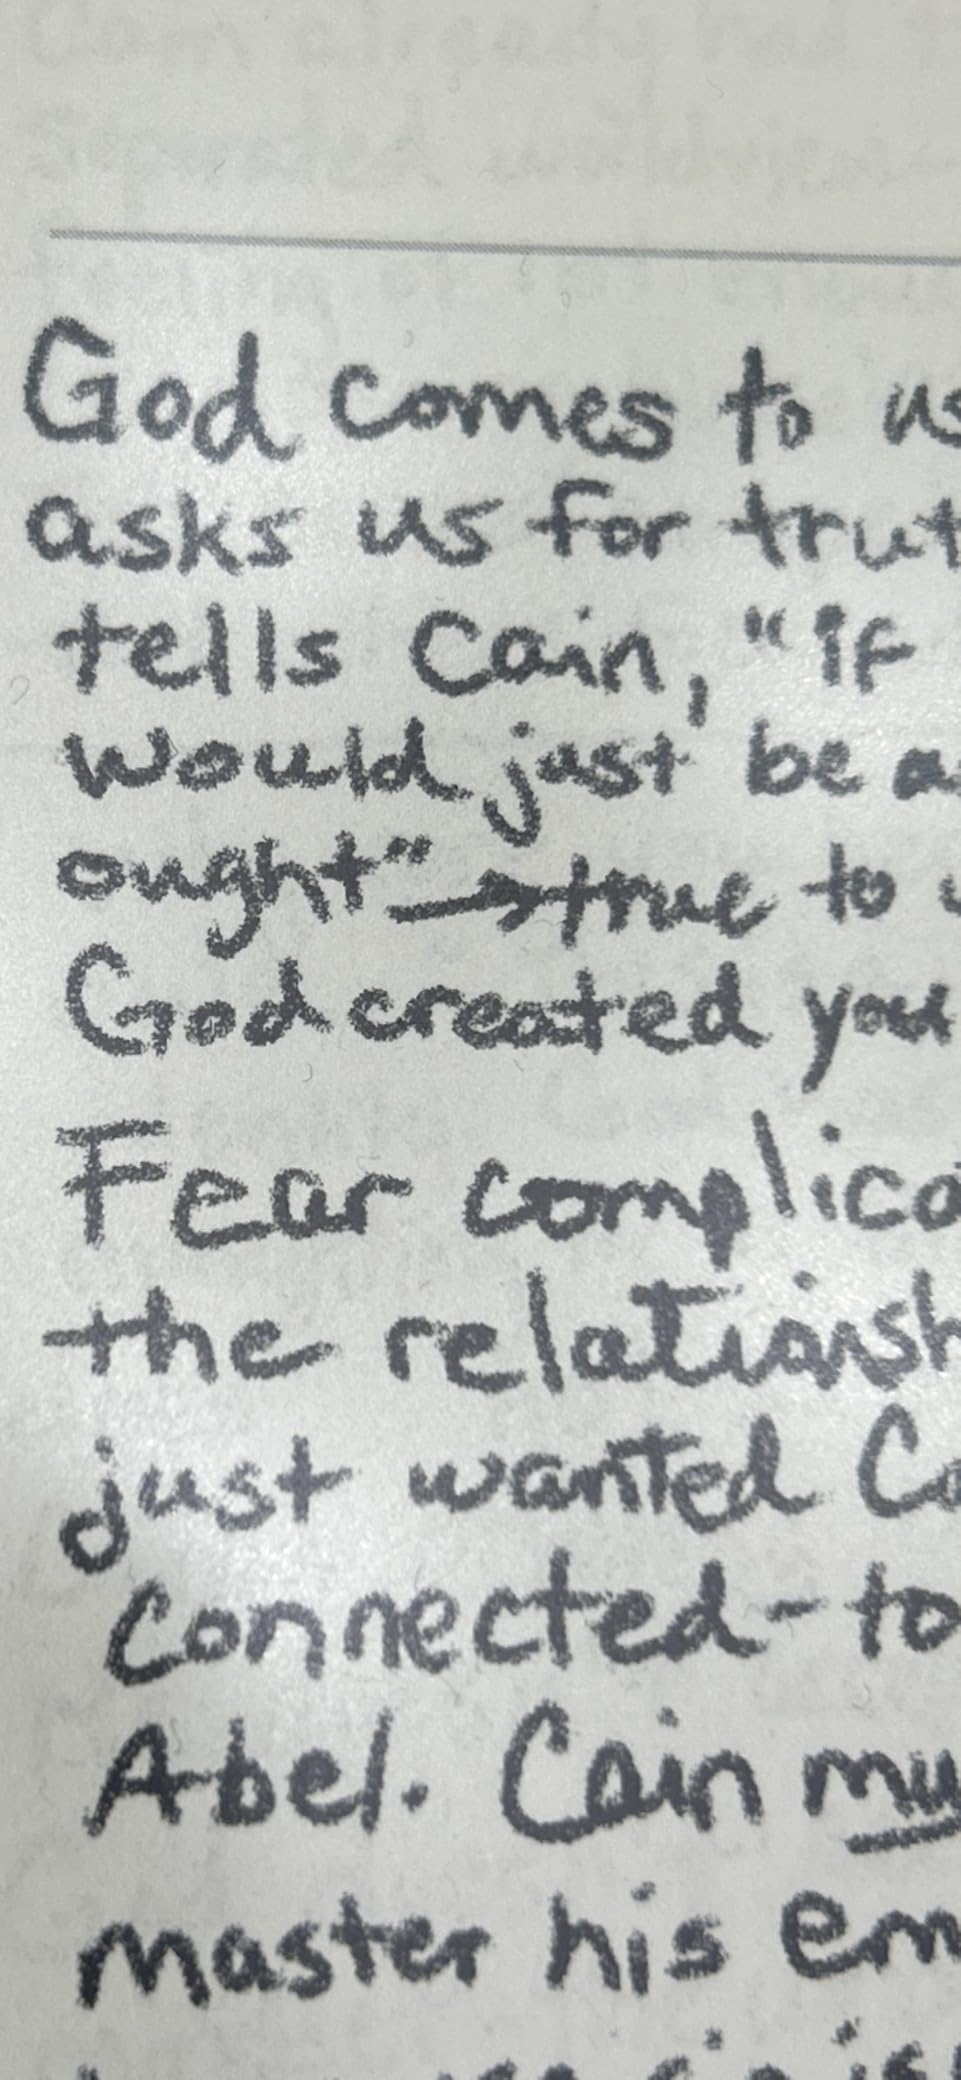 God comes to us
asks us for trut
tells Cain, "if
would just be as
ought" → true to
God created you
Fear complica
the relationsh
just wanted Ca
Connected - to
Abel. Cain mu
master his em